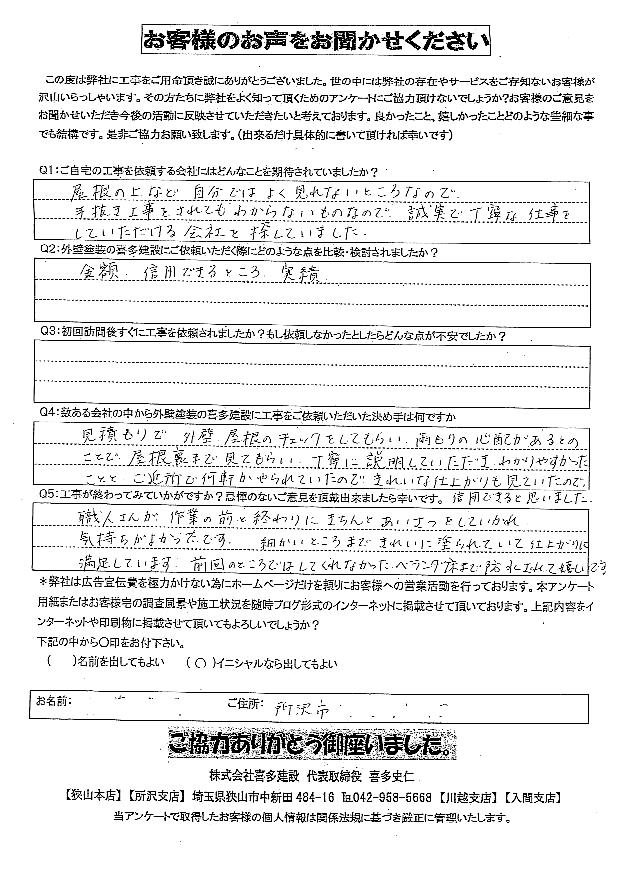 お客様のお声をお聞かせください
この度は弊社に工事をご用命頂き誠にありがとうございました。世の中には弊社の存在やサービスをご存知ないお客様が
沢山いらっしゃいます。その方たちに弊社をよく知って頂くためのアンケートにご協力頂けないでしょうか?お客様のご意見を
お聞かせいただき今後の活動に反映させていただきたいと考えております。良かったこと、嬉しかったことどのような些細な事
でも結構です。是非ご協力お願い致します。(出来るだけ具体的に書いて頂ければ幸いです)
Q1:ご自宅の工事を依頼する会社にはどんなことを期待されていましたか?
屋根の上など 自分では よく見れないところなので
手抜き工事をされてもわからないものなので 誠実で丁寧な仕事を
していただける会社を探していました。
Q2:外壁塗装の喜多建設にご依頼いただく際にどのような点を比較・検討されましたか?
金額 信用できるところ 実績
Q3:初回訪問後すぐに工事を依頼されましたか?もし依頼しなかったとしたらどんな点が不安でしたか?
Q4:数ある会社の中から外壁塗装の喜多建設に工事をご依頼いただいた決め手は何ですか
見積もりで 外壁 屋根のチェックをしてもらい 雨もりの心配があるとの
ことで 屋根裏まで見てもらい 丁寧に説明していただき わかりやすかった
ことと ご近所で何軒かやられていたので きれいな仕上がりも見ていたので
Q5:工事が終わってみていかがですか?忌憚のないご意見を頂戴出来ましたら幸いです。 信用できると思いました
職人さんが 作業の前と終わりに きちんと あいさつをしていかれ
気持ちがよかったです。 細かいところまできれいに塗られていて仕上がりに
満足しています 前回のところではしてくれなかった ベランダ床まで防水されて嬉しいです
*弊社は広告宣伝費を極力かけない為にホームページだけを頼りにお客様への営業活動を行っております。本アンケート
用紙またはお客様宅の調査風景や施工状況を随時ブログ形式のインターネットに掲載させて頂いております。上記内容をイ
ンターネットや印刷物に掲載させて頂いてもよろしいでしょうか?
下記の中から〇印をお付下さい。
( )名前を出してもよい (〇)イニシャルなら出してもよい
お名前: ご住所: 所沢市
ご協力ありがとう御座いました。
株式会社喜多建設 代表取締役 喜多史仁
【狭山本店】【所沢支店】埼玉県狭山市中新田484-16 ℡042-958-5668【川越支店】【入間支店】
当アンケートで取得したお客様の個人情報は関係法規に基づき厳正に管理いたします。